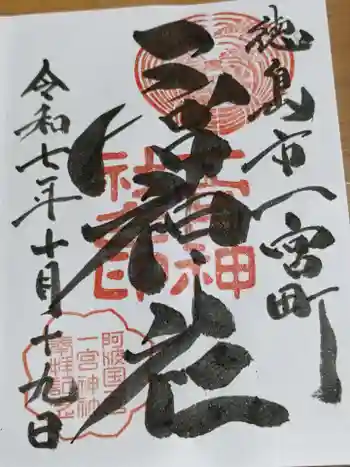 徳島市一宮町
一宮神社
一宮神
社之印
令和七年十月十九日
阿波国
一宮神社
参拝記念